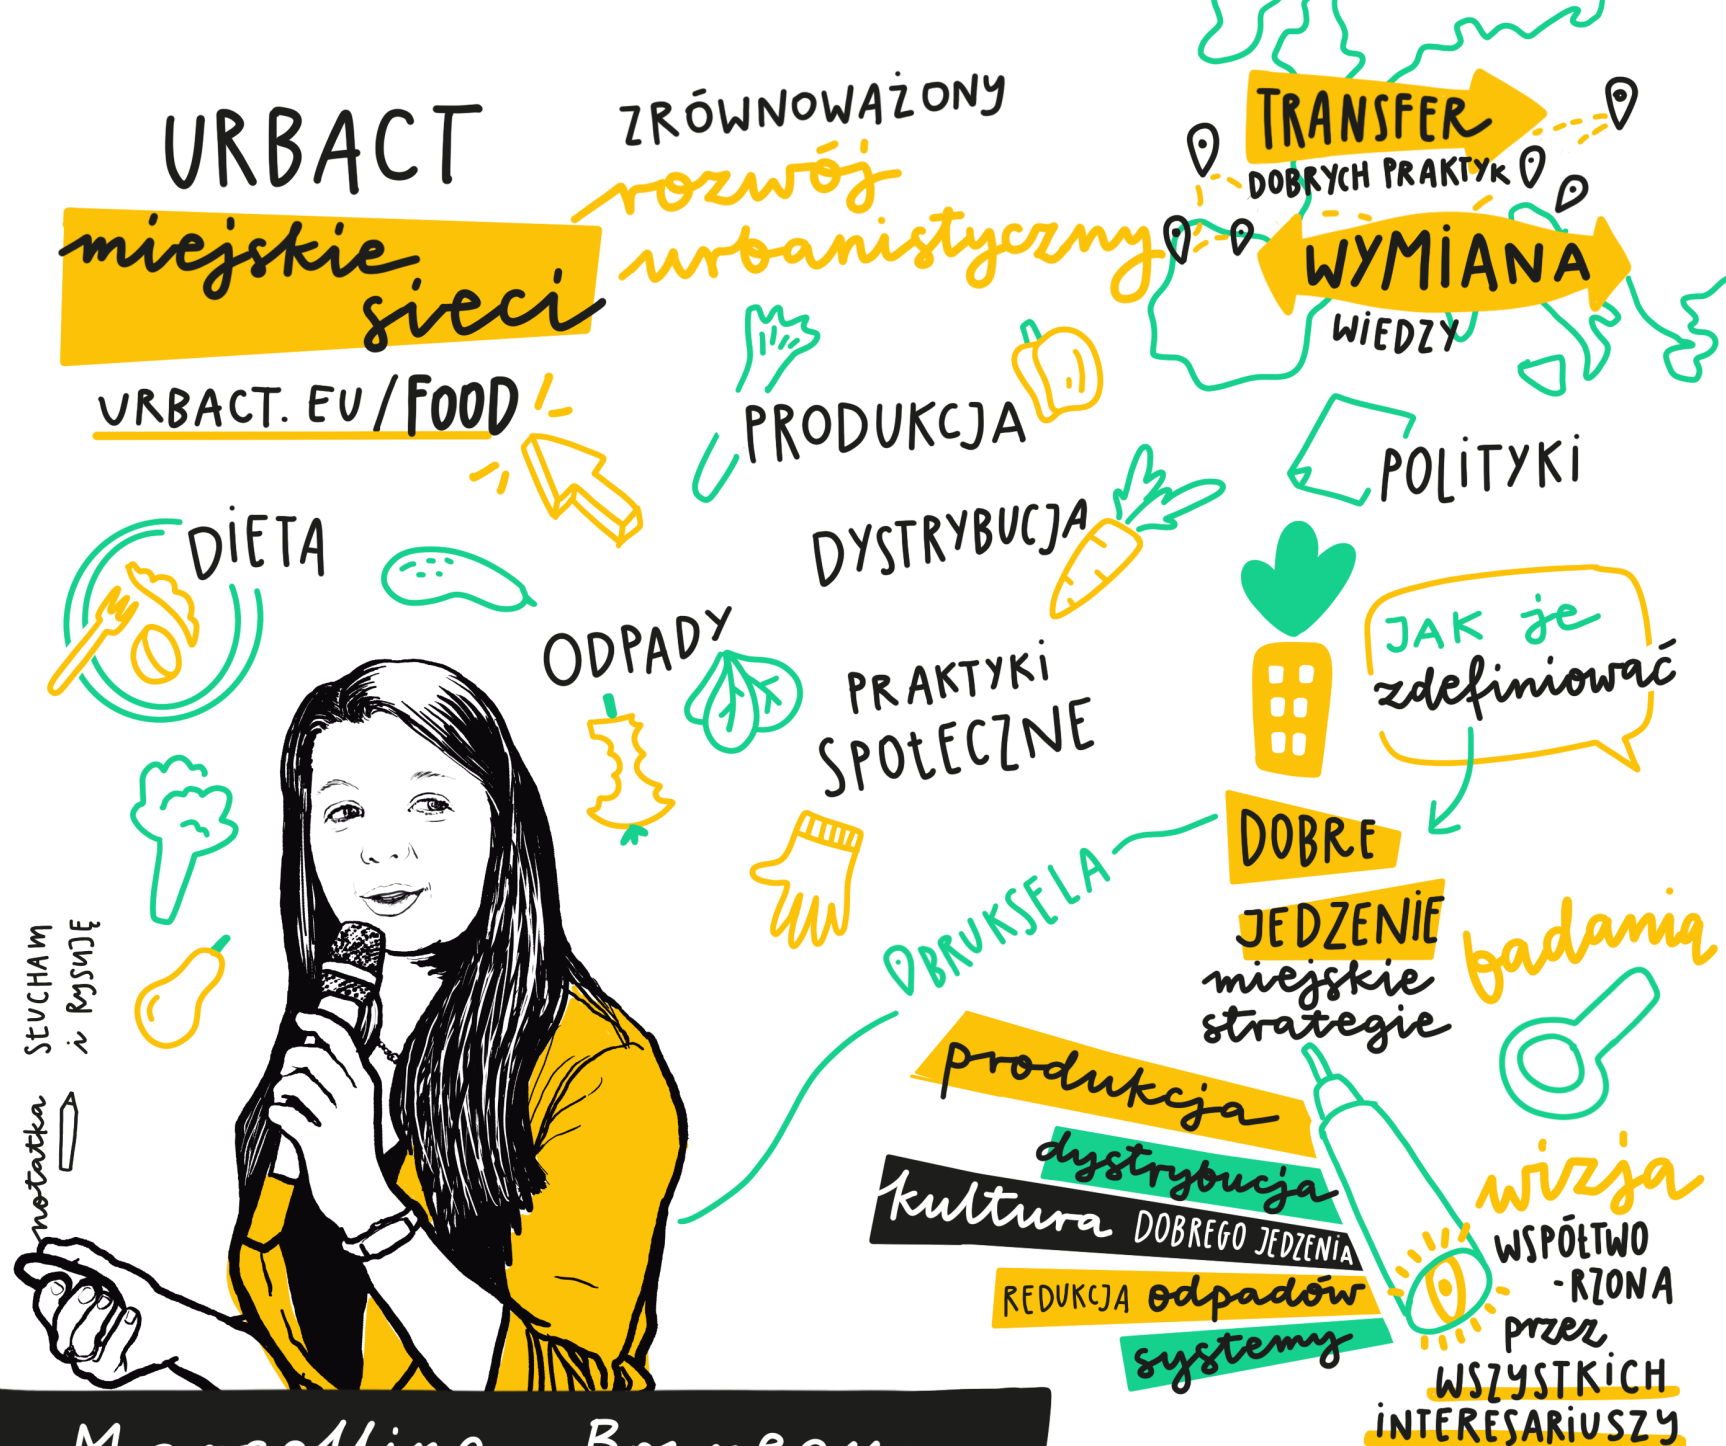 URBACT
miejskie
sieci
URBACT.EU/FOOD
ZRÓWNOWAŻONY
rozwój
urbanistyczny
TRANSFER
DOBRYCH PRAKTYK
WYMIANA
WIEDZY
PRODUKCJA
POLITYKI
DYSTRYBUCJA
DIETA
ODPADY
PRAKTYKI
SPOŁECZNE
JAK je
zdefiniować
DOBRE
JEDZENIE
miejskie
strategie
BRUKSELA
badania
produkcja
dystrybucja
kultura DOBREGO JEDZENIA
REDUKCJA odpadów
systemy
wizja
WSPÓŁTWO
-RZONA
przez
WSZYSTKICH
INTERESARIUSZY
notatka SŁUCHAM
i RysuJĘ